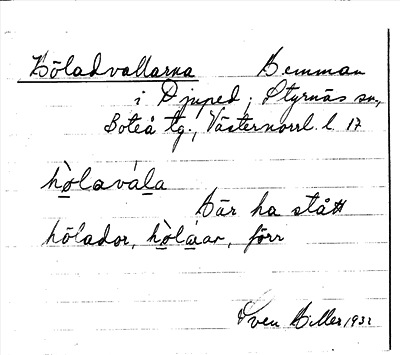 Höladvallarna Hemman
i Djuped, Styrnäs sn,
Boteå tg., Västernorrl. l. 17
hò̱lavá̱la
här ha stått
hölador, hò̱là̱ar, förr
Sven Hiller 1932